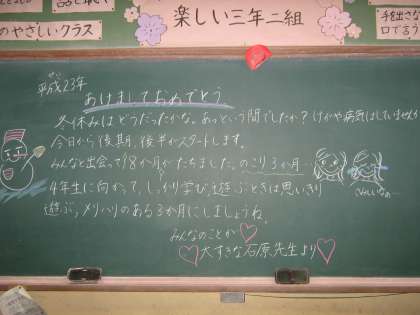 のやさしいクラス
楽しい三年二組
手を出さな
口で言う
平成23年
あけましておめでとう
冬休みはどうだったかな。あっという間でしたか？けがや病気はしていませんか
今日から後期、後半がスタートします。
みんなと出会って18か月がたちました。のこり3か月
4年生に向かって、しっかり学び、遊ぶときは思いきり
遊ぶ。メリハリのある3か月にしましょうね。
みんなのことが
大すきな石原先生より